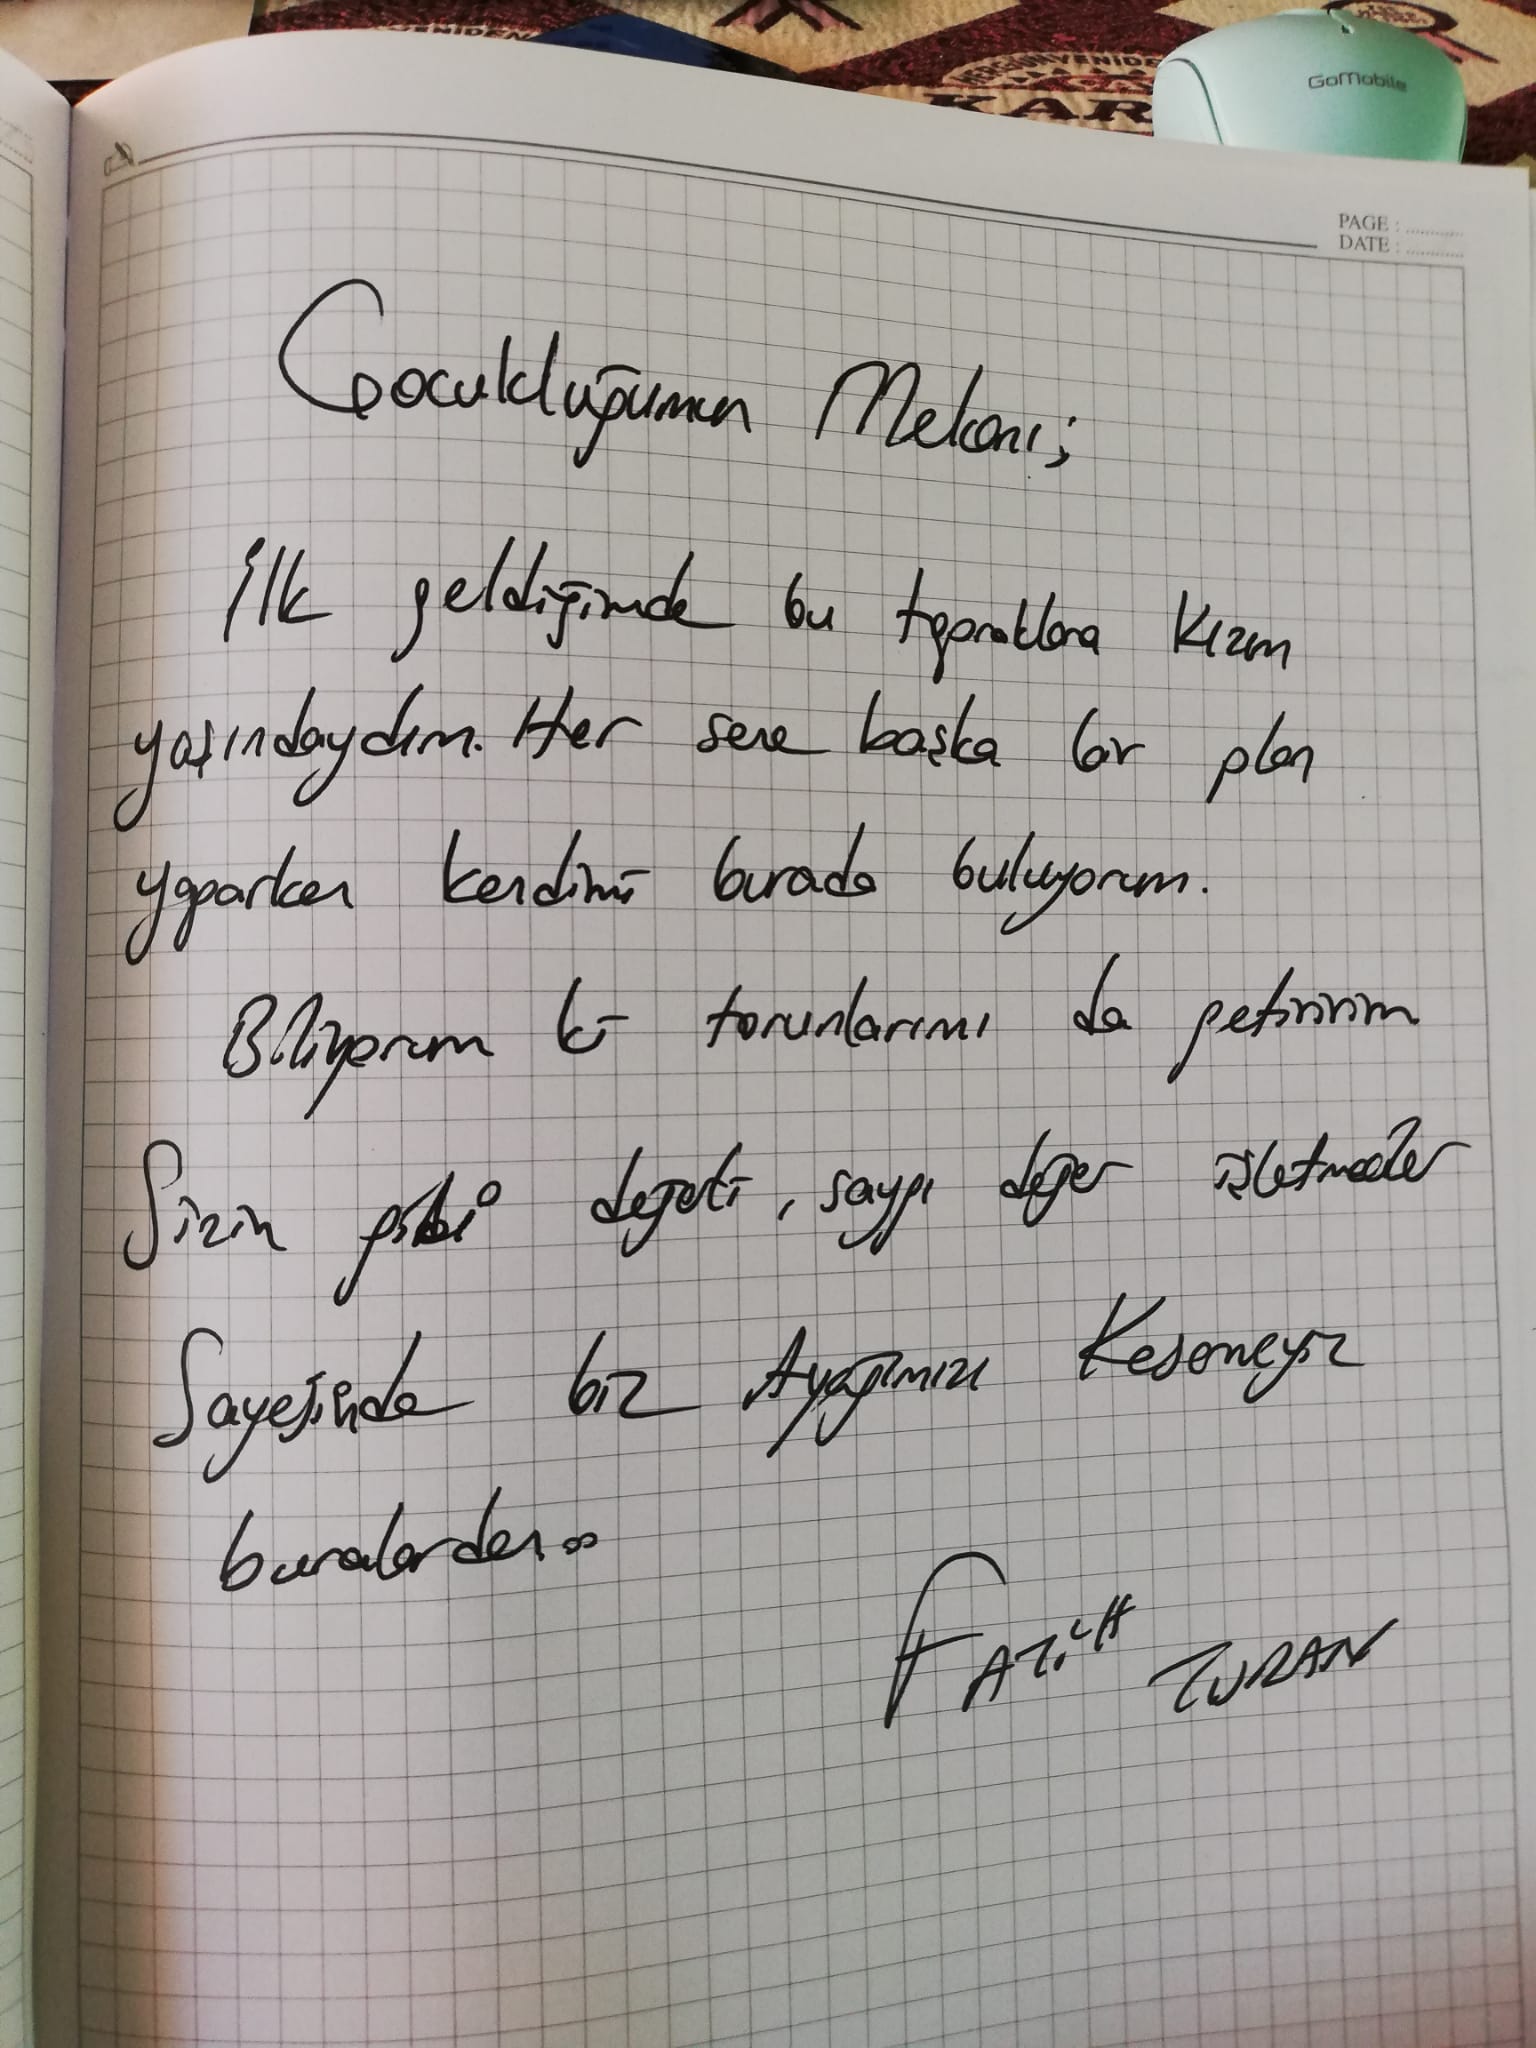 YENİDEN
HERGÜN YENİDEN
KAR
GoMobile
PAGE :
DATE :
Çocukluğumun Mekanı;
İlk geldiğimde bu topraklara Kızım
yaşındaydım. Her sene başka bir plan
yaparken kendimi burada buluyorum.
Biliyorum ki torunlarımı da getiririm
Sizin gibi değerli, saygı değer işletmeciler
Sayesinde biz Ayağımızı Kesemeyiz
buralardan..
FATİH TURAN